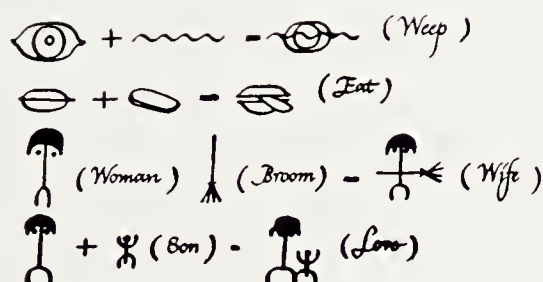 + - (Weep)
+ - (Eat)
(Woman) (Broom) - (Wife)
+ (Son) - (Love)